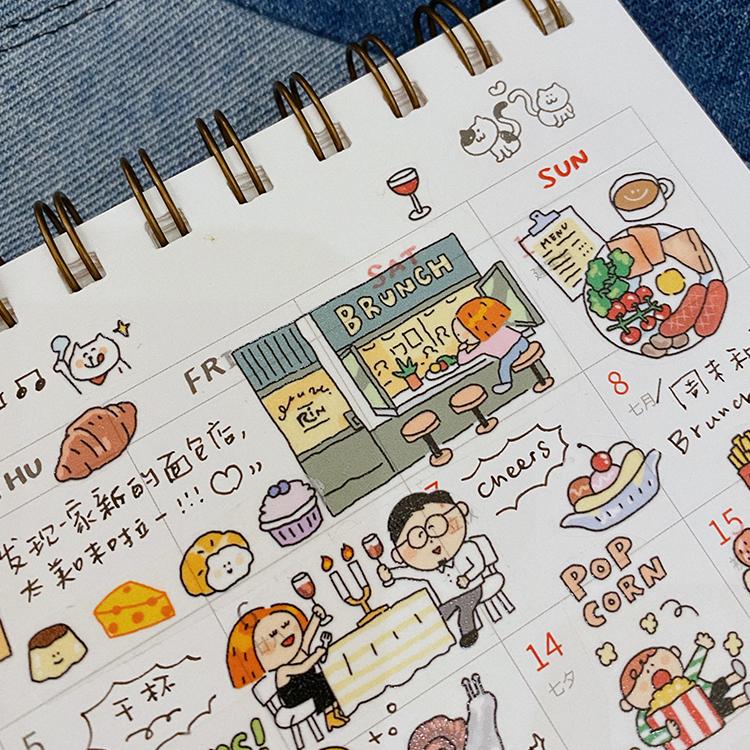 SUN
SAT
FRI
HU
BRUNCH
MENU
RIN
发现一家新的面包店，
太美味啦一!!! ♡"
8
七月/周末和
Brunch
7
cheers
15
POP
CORN
14
七夕
5
干杯